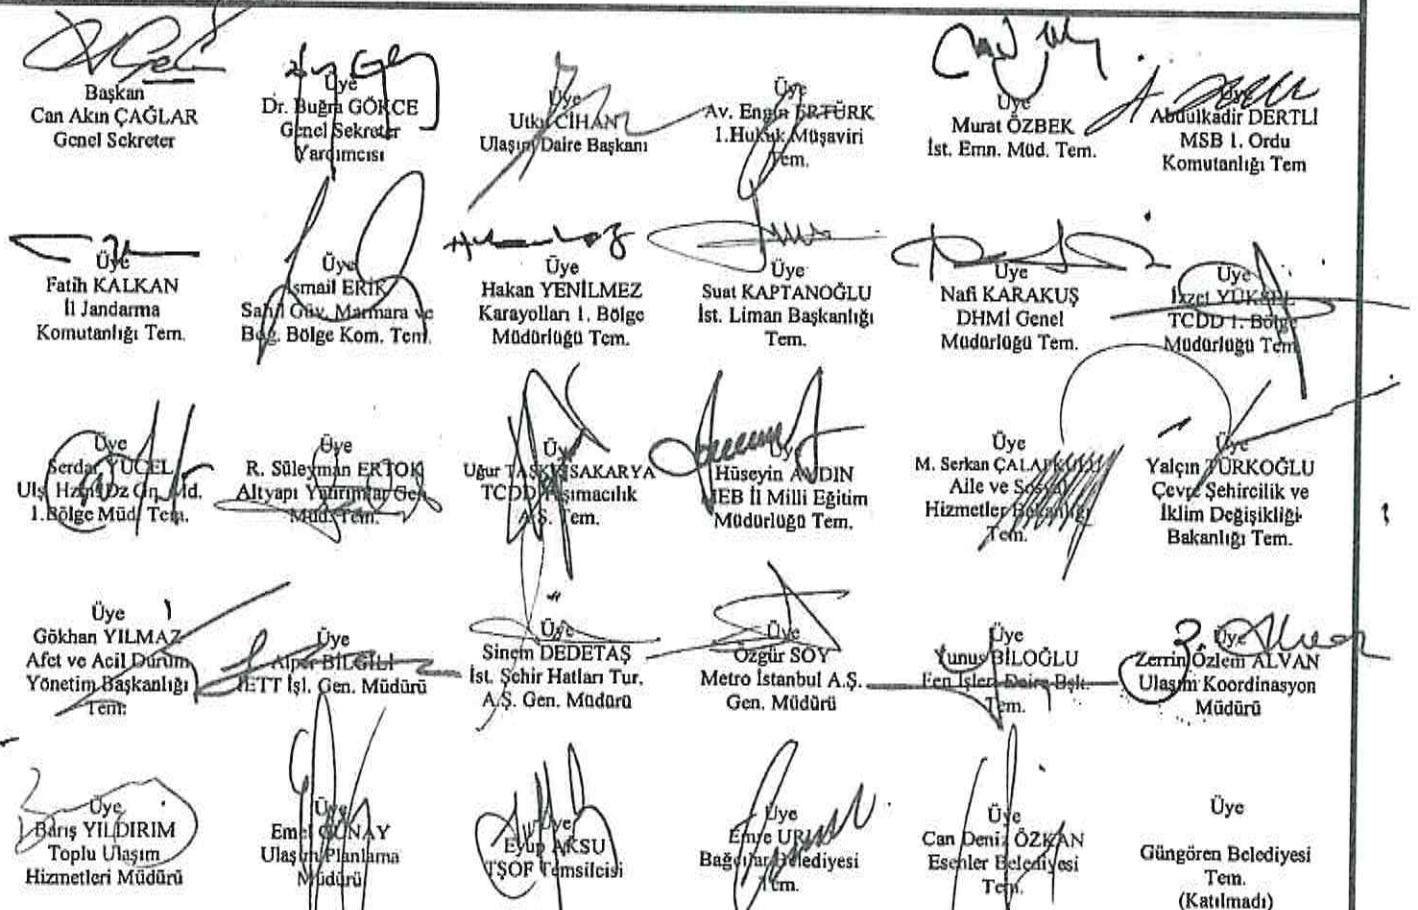 Başkan
Can Akın ÇAĞLAR
Genel Sekreter
Üye
Dr. Buğra GÖKCE
Genel Sekreter
Yardımcısı
Üye
Utku CİHAN
Ulaşım Daire Başkanı
Üye
Av. Engin ERTÜRK
1.Hukuk Müşaviri
Tem.
Üye
Murat ÖZBEK
İst. Emn. Müd. Tem.
Üye
Abdulkadir DERTLİ
MSB 1. Ordu
Komutanlığı Tem
Üye
Fatih KALKAN
İl Jandarma
Komutanlığı Tem.
Üye
İsmail ERİK
Sahil Güv. Marmara ve
Boğ. Bölge Kom. Tem.
Üye
Hakan YENİLMEZ
Karayolları 1. Bölge
Müdürlüğü Tem.
Üye
Suat KAPTANOĞLU
İst. Liman Başkanlığı
Tem.
Üye
Nafi KARAKUŞ
DHMİ Genel
Müdürlüğü Tem.
Üye
İzzet YÜKSEL
TCDD 1. Bölge
Müdürlüğü Tem
Üye
Serdar YÜCEL
Ulş. Hzm. Dz Gn. Md.
1.Bölge Müd. Tem.
Üye
R. Süleyman ERTOK
Altyapı Yatırımlar Gen.
Müd. Tem.
Üye
Uğur SAKARYA
TCDD Taşımacılık
A.Ş. Tem.
Üye
Hüseyin AYDIN
MEB İl Milli Eğitim
Müdürlüğü Tem.
Üye
M. Serkan
Aile ve Sosyal
Hizmetler Bakanlığı
Tem.
Üye
Yalçın TÜRKOĞLU
Çevre Şehircilik ve
İklim Değişikliği
Bakanlığı Tem.
Üye
Gökhan YILMAZ
Afet ve Acil Durum
Yönetim Başkanlığı
Tem.
Üye
Alper BİLGİLİ
İETT İşl. Gen. Müdürü
Üye
Sinem DEDETAŞ
İst. Şehir Hatları Tur.
A.Ş. Gen. Müdürü
Üye
Özgür SOY
Metro İstanbul A.Ş.
Gen. Müdürü
Üye
Yunus BİLOĞLU
Fen İşleri Daire Bşk.
Tem.
Üye
Zerrin Özlem ALVAN
Ulaşım Koordinasyon
Müdürü
Üye
Barış YILDIRIM
Toplu Ulaşım
Hizmetleri Müdürü
Üye
Emel GÜNAY
Ulaşım Planlama
Müdürü
Üye
Eyüp AKSU
TŞOF Temsilcisi
Üye
Emre
Bağcılar Belediyesi
Tem.
Üye
Can Deniz ÖZKAN
Esenler Belediyesi
Tem.
Üye
Güngören Belediyesi
Tem.
(Katılmadı)